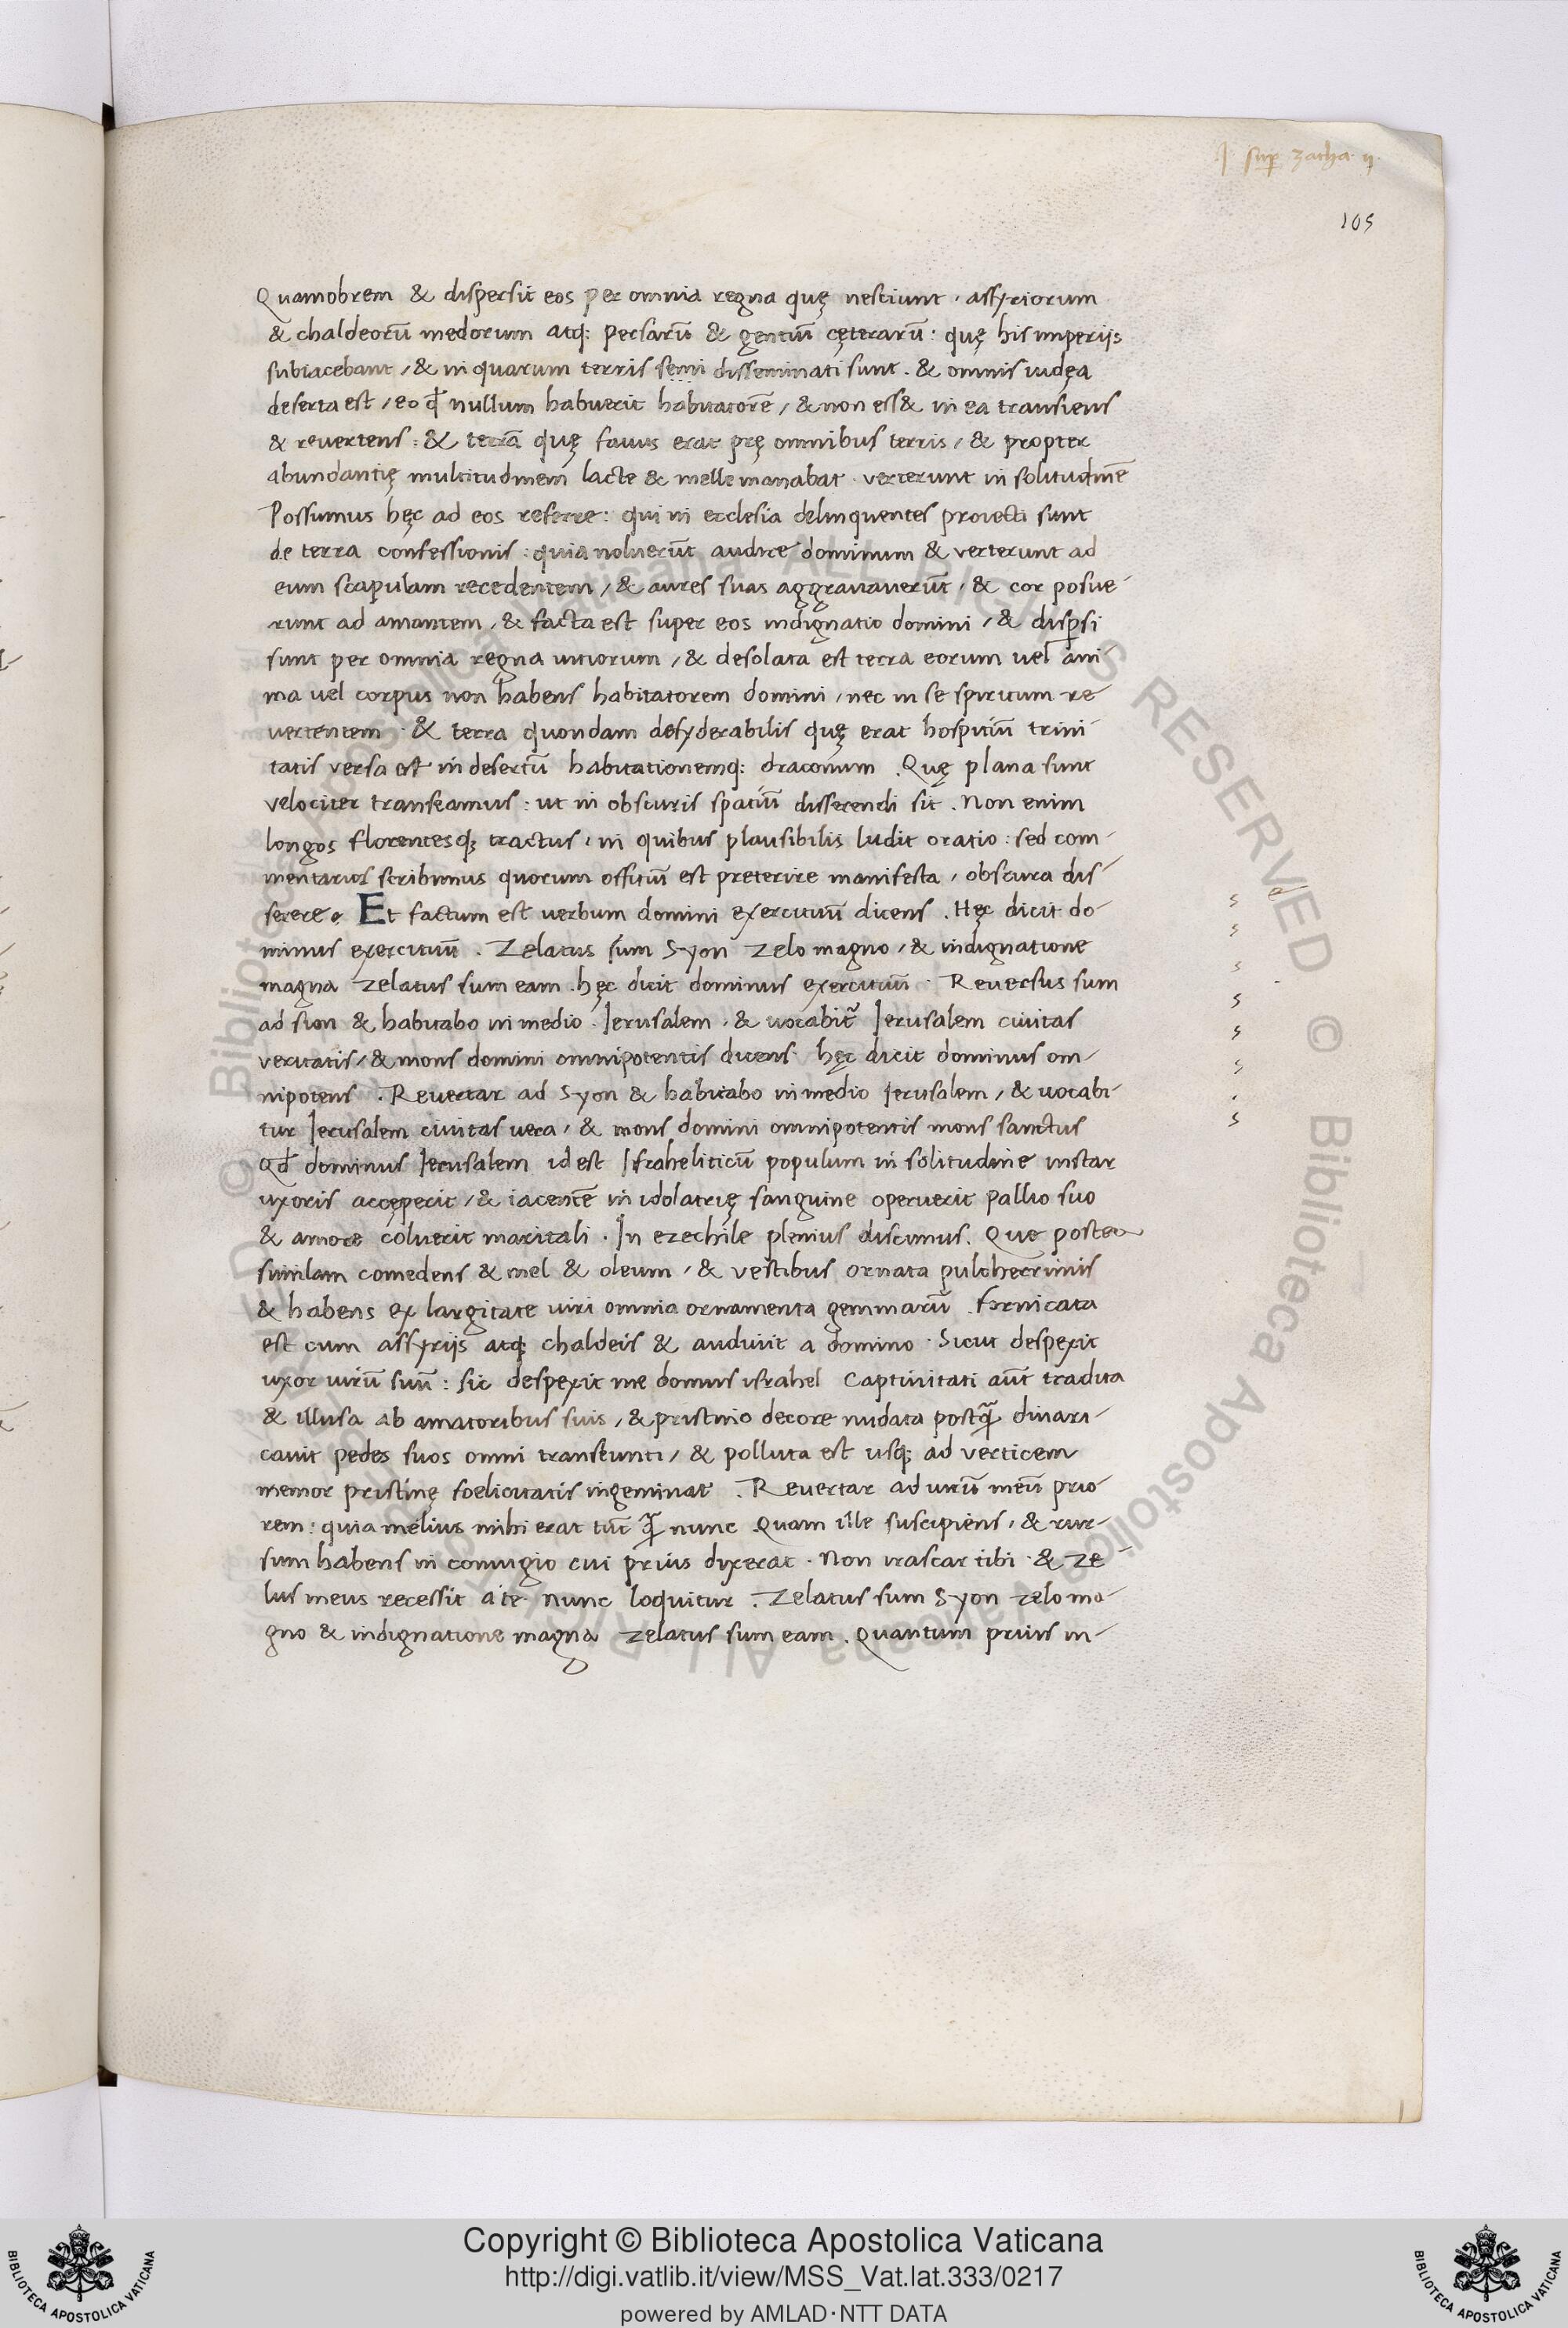 J. sup zacha. ij.
105
Quamobrem & dispersit eos per omnia regna quę nesciunt, assyriorum
& chaldeorū medorum atq; persarū & gentiū cęterarū: quę his imperijs
subiacebant, & in quarum terris semi disseminati sunt. & omnis iudęa
deserta est, eo qđ nullum habuerit habitatorē, & non ess& in ea transiens
& revertens: & terrā quę favus erat prę omnibus terris, & propter
abundantię multitudinem lacte & melle manabat. verterunt in solitudinē
Possumus hęc ad eos referre: qui in ecclesia delinquentes proiecti sunt
de terra confessionis: quia noluerūt audire dominum & verterunt ad
eum scapulam recedentem, & aures suas aggravaverūt, & cor posue-
runt ad amantem, & facta est super eos indignatio domini, & disp̱si
sunt per omnia regna vitiorum, & desolata est terra eorum vel ani-
ma vel corpus non habens habitatorem domini, nec in se spiritum re-
vertentem. & terra quondam desyderabilis quę erat hospitiū trini-
tatis versa est in desertū habitationemq; draconum. Quę plana sunt
velociter transeamus: ut in obscuris spatiū disserendi sit. Non enim
longos florentesq; tractus, in quibus plausibilis ludit oratio: sed com-
mentarios scribimus quorum offitiū est preterire manifesta, obscura dis-
serere. Et factum est verbum domini exercituū dicens. Hęc dicit do-
minus exercituū. Zelatus sum Syon zelo magno, & indignatione
magna zelatus sum eam. hęc dicit dominus exercituū. Reversus sum
ad sion & habitabo in medio Jerusalem, & vocabit̃ Jerusalem civitas
veritatis, & mons domini omnipotentis dicens. hęc dicit dominus om-
nipotens. Revertar ad Syon & habitabo in medio Jerusalem, & vocabi-
tur Jerusalem civitas vera, & mons domini omnipotentis mons sanctus
Qđ dominus Jerusalem id est Israheliticū populum in solitudine instar
uxoris accęperit, & iacentē in idolatrię sanguine operuerit pallio suo
& amore coluerit maritali. In ezechile plenius discimus. Que postea
similam comedens & mel & oleum, & vestibus ornata pulcherrimis
& habens ex largitate viri omnia ornamenta gemmarū. fornicata
est cum assyrijs atq; chaldeis & audivit a domino. Sicut despexit
uxor virū suū: sic despexit me domus israhel Captivitati aūt tradita
& illusa ab amatoribus suis, & pristino decore nudata postq̃ divari-
cavit pedes suos omni transeunti, & polluta est usq; ad verticem
memor pristinę foelicitatis ingeminat. Revertar ad virū meū prio-
rem: quia melius mihi erat tūc q̃ nunc Quam ille suscipiens, & rur-
sum habens in coniugio cui prius dixerat. Non irascar tibi. & ze-
lus meus recessit a te. nunc loquitur. Zelatus sum Syon zelo ma-
gno & indignatione magna zelatus sum eam. Quantum prius in-
Copyright © Biblioteca Apostolica Vaticana
http://digi.vatlib.it/view/MSS_Vat.lat.333/0217
powered by AMLAD·NTT DATA
BIBLIOTECA APOSTOLICA VATICANA
BIBLIOTECA APOSTOLICA VATICANA